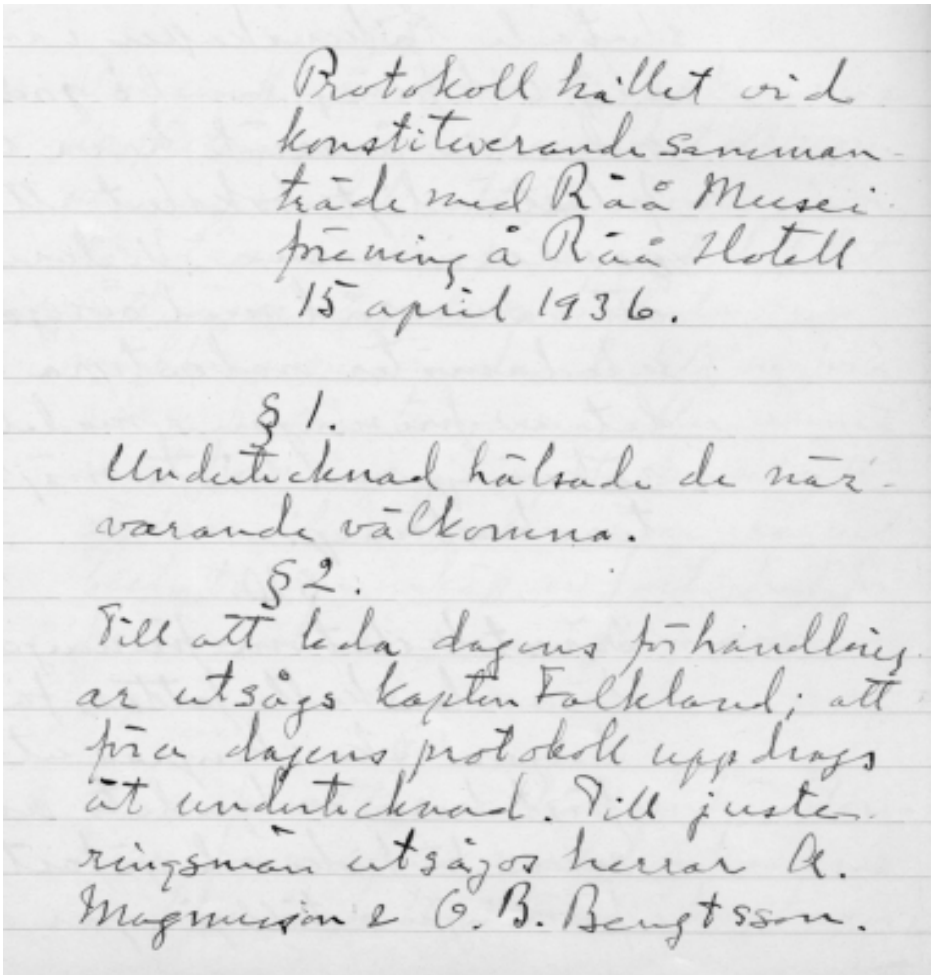 Protokoll hållet vid
konstituerande samman-
träde med Råå Musei
förening å Råå Hotell
15 april 1936.
§ 1.
Undertecknad hälsade de när-
varande välkomna.
§ 2.
Till att leda dagens förhandling-
ar utsågs kapten Falkland; att
föra dagens protokoll uppdrags
åt undertecknad. Till juste-
ringsmän utsågos herrar A.
Magnusson & O. B. Bengtsson.